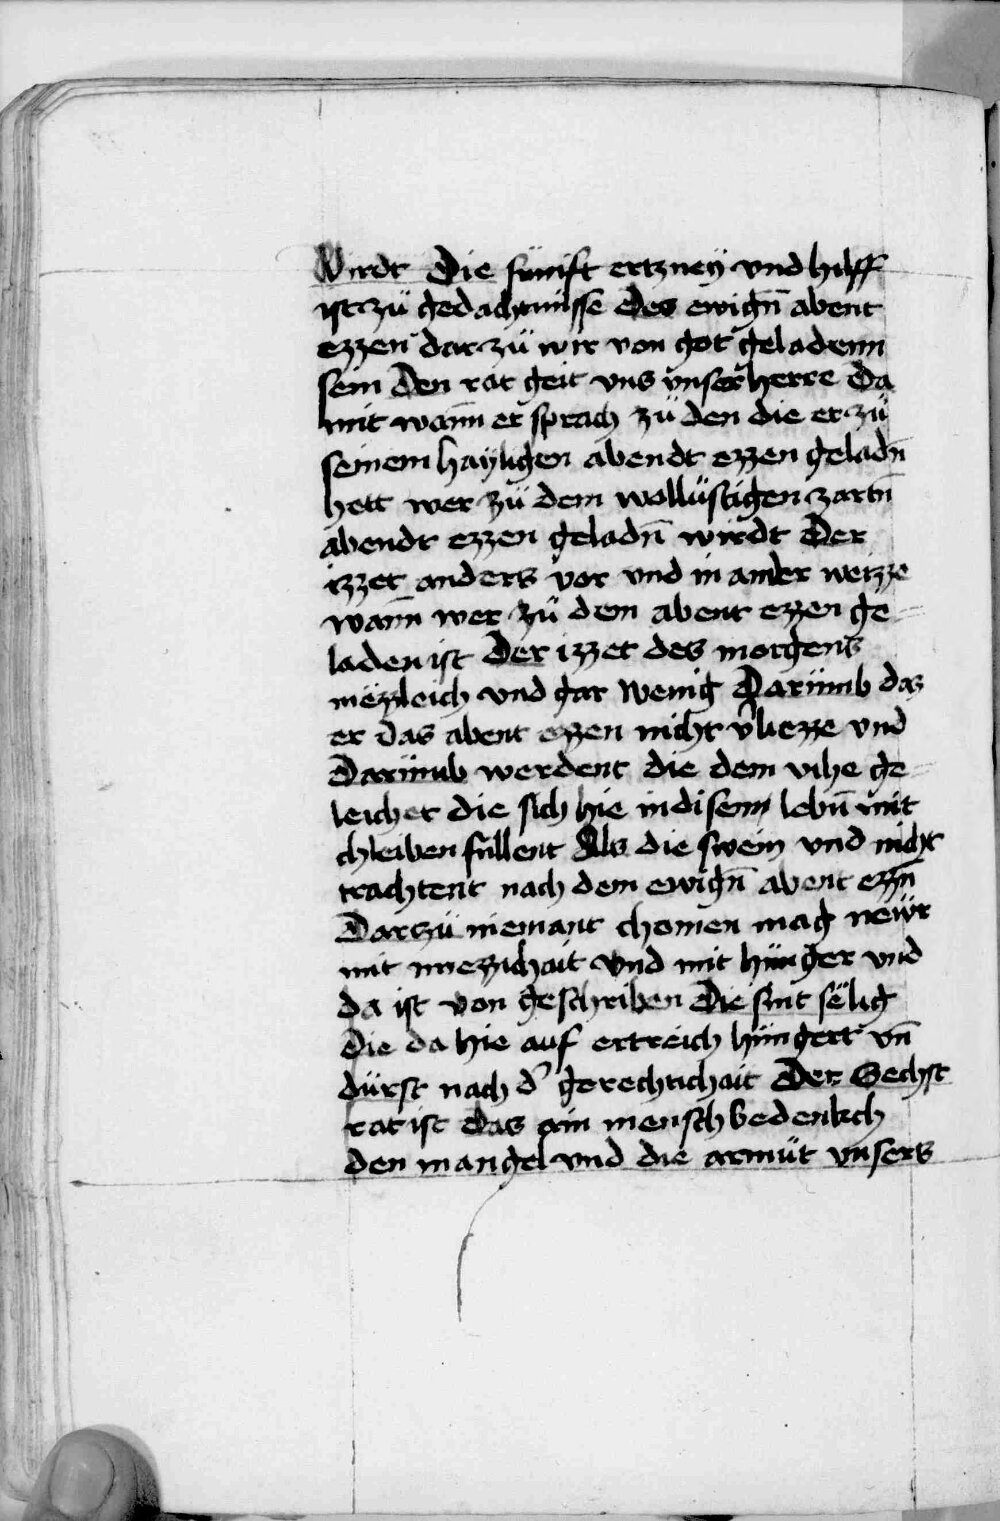 Wirdt Die fünift ertzney vnd hilff
ist zü gedachtnüsse Des ewign̄ abent
ezzen dar zü wir von got geladenn
sein Den rat geit vns vnser herre Da
mit wann̄ er sprach zü den die er zü
seinem hayligen abendt ezzen geladn̄
hett wer zü dem wollüstigen zartn̄
abendt ezzen geladn̄ wirdt Der
izzet anders vor vnd in ander weizze
wann̄ wer zü dem abent ezzen ge=
laden ist Der izzet des morgens
mëzzleich vnd gar wenig Darümb das
er das abent ezzen nicht v̾liezze vnd
Darümb werdent die dem vihe ge=
leichet die sich hie in disem lebn̄ mit
chleiben füllent Als die swein vnd nicht
trachtent nach dem ewign̄ abent ezzn̄
Dar zü niemant chomen mag newr
mit mezzichait vnd mit hünger vnd
da ist von geschriben Die sint sëlig
Die da hie auf ertreich hüngert vn̄
dürst nach d̾ gerechtichait Der Sechst
rat ist Das ain mensch bedenkch
den mangel vnd die armüt vnsers